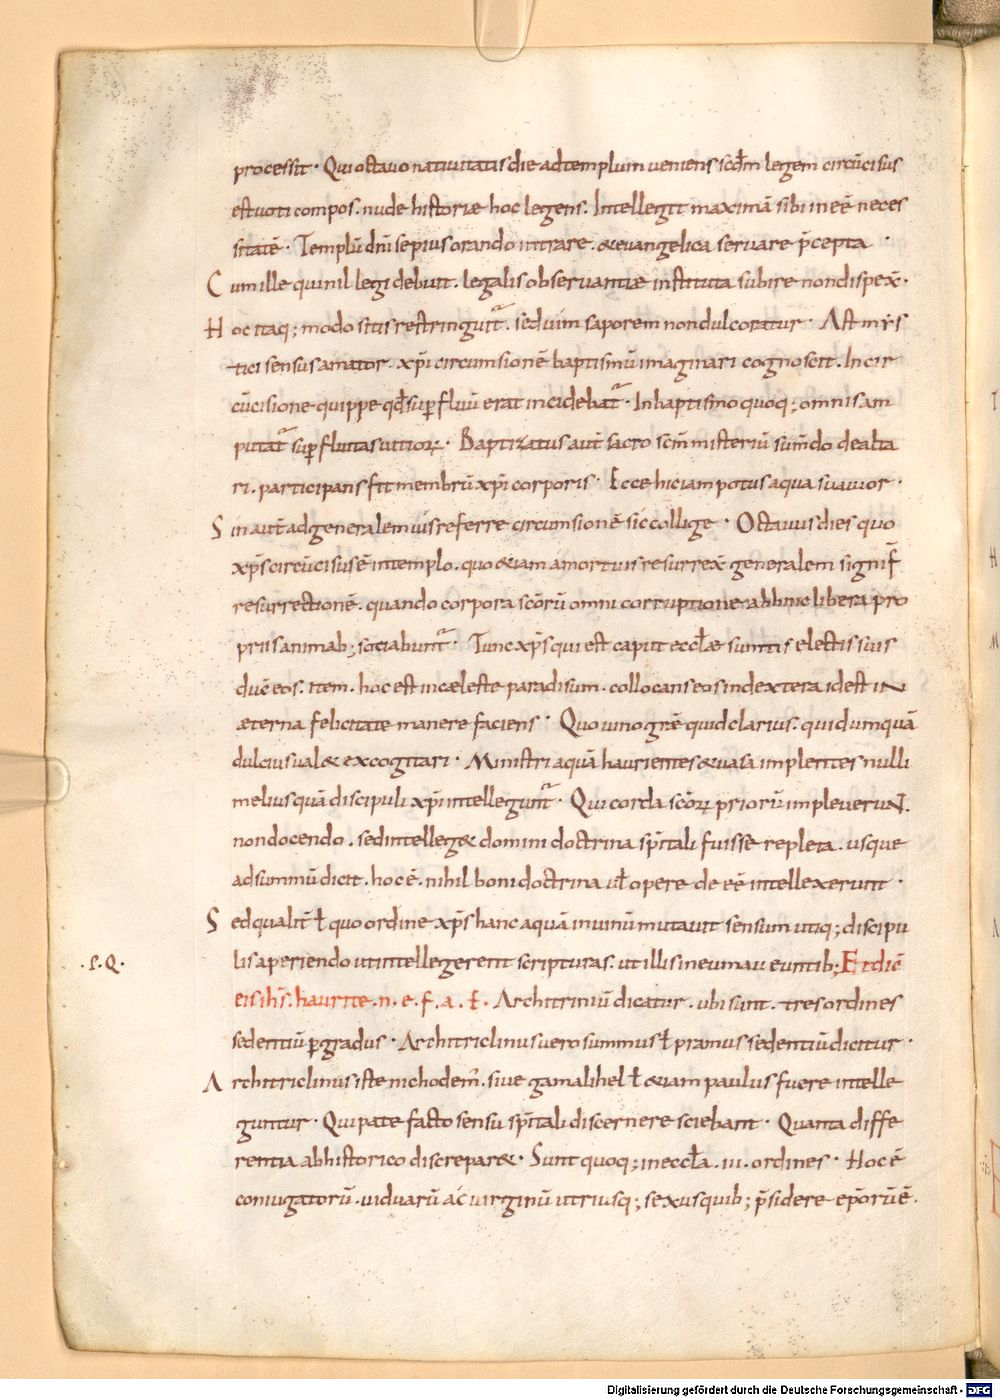 processit · Qui octavo nativitatis die ad templum veniens scdm legem circūcisus
est voti compos . nude historiæ hoc legens . Intellegit maximā sibi inēe neces
sitatē · Templū dnī sepius orando intrare . & evangelica servare p̄cepta ·
Cum ille qui nil legi debuit . legalis observantiæ instituta subire non dispex̄ ·
Hoc itaq; modo sitis restringuit̄ . sed vini saporem non dulcoratur · Ast mẏs
tici sensus amator . xp̄i circumsionē baptismū imaginari cognoscit . In cir
cūcisione quippe qđ sup̱fluū erat incidebat̄ · In baptismo quoq; omnis am
putat̄ sup̱fluitas vitioꝝ · Baptizatus aut̄ sacro scm̄ misteriū sum̄do de alta
ri . participans fit membrū xp̄i corporis · Ecce hic iam potus aqua suavior ·
Sin aut̄ ad generalem vis referre circumsionē sic collige · Octavus dies quo
xp̄s circūcisus ē in templo . quo & iam a mortuis resurrex̄ generalem signif̄
resurrectionē . quando corpora scōrū omni corruptione abhinc libera pro
priis animab; sociabunt̄ · Tunc xp̄s qui est caput ecclæ sumtis electis suis
ducē eos . item . hoc est in cæleste paradisum . collocans eos in dextera id est iN
æterna felicitate manere faciens · Quo vino grē quid clarius . quid umquā
dulcius val& excogitari · Ministri aquā haurientes & vasa implentes nulli
melius quā discipuli xp̄i intellegunt̄ · Qui corda scōꝝ priorū impleveruN̄ .
non docendo . sed intelleg& domini doctrina spiritali fuisse repleta . usque
ad summū dicit . hoc ē . nihil boni doctrina vł opere de eē intellexerunt ·
Sed qualit̄ ł quo ordine xp̄s hanc aquā in vinū mutavit sensum utiq; discipu
.S.Q.
lis aperiendo ut intellegerent scripturas . ut illis in eumau euntib; Et dic̄
eis ihs̄ . haurite . n . e . f . a . t . Architriniū dicatur . ubi sunt . tres ordines
sedentiū p̱ gradus · Architriclinus vero summus ł primus sedentiū dicitur ·
Architriclinus iste nichodem̄ . sive gamalihel ł & iam paulus fuere intelle
guntur · Qui pate facto sensu sp̄itali discernere sciebant · Quanta diffe
rentia ab historico discrepar& · Sunt quoq; in eccl̄a . iii . ordines · Hoc ē
coniugatorū . viduarū ac virginū utriusq; sexus quib; p̄sidere ep̄orū ē .
Digitalisierung gefördert durch die Deutsche Forschungsgemeinschaft - DFG